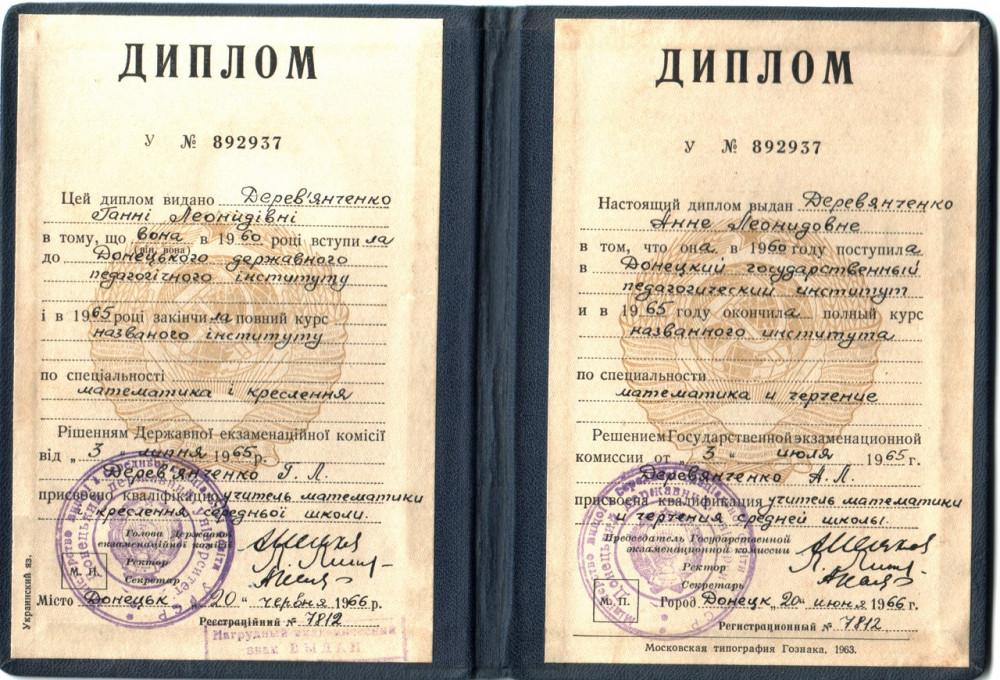 ДИПЛОМ
У № 892937
Цей диплом видано Дерев'янченко
Ганні Леонидівні
в тому, що вона в 1960 році вступила
(він, вона)
до Донецького державного
педагогічного інституту
і в 1965 році закінчила повний курс
названого інституту
по спеціальності
математика і креслення
Рішенням Державної екзаменаційної комісії
від „3“ липня 1965 р.
Дерев'янченко Г. Л.
присвоєно кваліфікацію учитель математики
креслення середньої школи.
Голова Державної
екзаменаційної комісії
Ректор
М. П.
Секретар
Місто Донецьк „20“ червня 1966 р.
Реєстраційний № 7812
Нагрудный академический
знак ВЫДАН
Украинский яз.
ДИПЛОМ
У № 892937
Настоящий диплом выдан Деревянченко
Анне Леонидовне
в том, что она в 1960 году поступила
в Донецкий государственный
педагогический институт
и в 1965 году окончила полный курс
названного института
по специальности
математика и черчение
Решением Государственной экзаменационной
комиссии от „3“ июля 1965 г.
Деревянченко А. Л.
присвоена квалификация учитель математики
и черчения средней школы.
Председатель Государственной
экзаменационной комиссии
Ректор
Секретарь
М. П.
Город Донецк „20“ июня 1966 г.
Регистрационный № 7812
Московская типография Гознака, 1963.